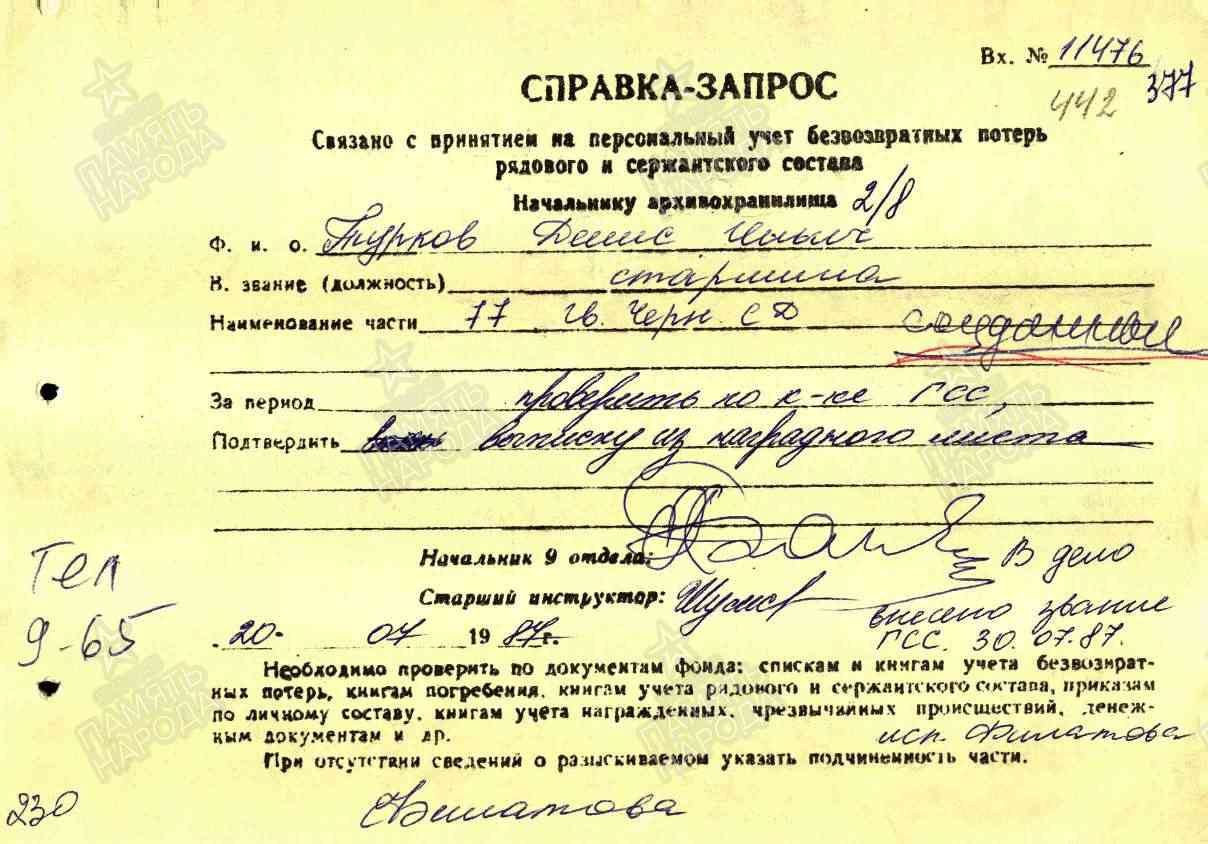 Вх. № 11476
442 377
СПРАВКА-ЗАПРОС
Связано с принятием на персональный учет безвозвратных потерь
рядового и сержантского состава
Начальнику архивохранилища 2/8
Ф. и. о. Турков Денис Ильич
В. звание (должность) старшина
Наименование части 77 гв. Черн СД
За период проверить по к-ке ГСС,
Подтвердить выписку из наградного листа
Начальник 9 отдела:
В дело
Старший инструктор:
внесено звание
ГСС. 30.07.87.
20. 07 1987г.
Тел
9-65
Необходимо проверить по документам фонда: спискам и книгам учета безвозврат-
ных потерь, книгам погребения, книгам учета рядового и сержантского состава, приказам
по личному составу, книгам учета награжденных, чрезвычайных происшествий, денеж-
ным документам и др.
исп. Филатова
При отсутствии сведений о разыскиваемом указать подчиненность части.
230
Филатова
ПАМЯТЬ НАРОДА